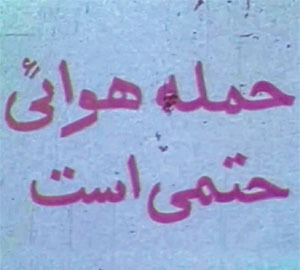 حمله هوائی
حتمی است